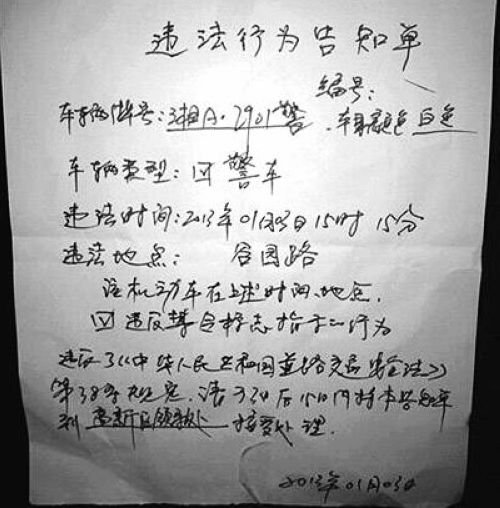 违法行为告知单
编号:
车辆牌号:湘A·2901警.车身颜色 白色
车辆类型: 囗 警车
违法时间:2013年01月03日15时15分
违法地点: 谷园路
该机动车在上述时间、地点.
囗 违反禁令标志指示的行为
违反了《中华人民共和国道路交通安全法》
第38条规定.请于 后 小时内持本告知单
到 高新区 处 接受处理.
2013年01月03日